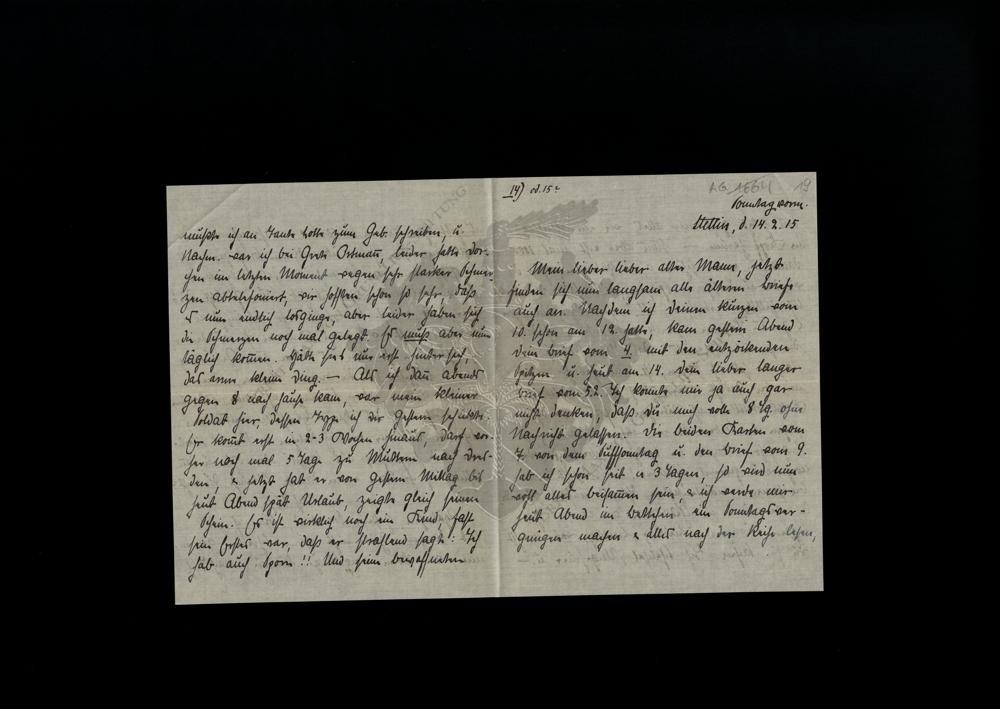 14) od. 15.
AG 1664 19
Sonntag vorm.
Stettin, d. 14.2.15
Mein lieber lieber alter Mann, jetzt
finden sich nun langsam alle älteren Briefe
auch an. Nachdem ich deinen kurzen vom
10. schon am 12. hatte, kam gestern Abend
dein Brief vom 4. mit den entzückenden
Spitzen u. heut am 14. dein lieber langer
Brief vom 5.2. Ich konnte mir ja auch gar
nicht denken, daß du mich volle 8 Tg. ohne
Nachricht gelassen. Die beiden Karten vom
7. von dem Suffsonntag u. den Brief vom 9.
hab ich schon seit 3 Tagen, so wird nun
wohl alles beisammen sein, & ich werde mir
heut Abend im Bettchen ein Sonntagsver-
gnügen machen & alles nach der Reihe lesen,
mußte ich an Tante Lotte zum Geb. schreiben, u.
Nachm. war ich bei Grete Ortmann, leider hatte Dor-
chen im letzten Moment wegen sehr starker Schmer-
zen abtelefoniert, wir hofften schon so sehr, daß
es nun endlich losginge, aber leider haben sich
die Schmerzen noch mal gelegt. Es muß aber nun
täglich kommen. Hätte sie's nur erst hinter sich,
das arme kleine Ding. — Als ich dann abends
gegen 8 nach Hause kam, war mein kleiner
Soldat hier, dessen Type ich dir gestern schickte.
Er kommt erst in 2-3 Wochen hinaus, darf vor-
her noch mal 5 Tage zu Muttern nach Dres-
den, & jetzt hat er von gestern Mittag bis
heut Abend spät Urlaub, zeigte gleich seinen
Schein. Es ist wirklich noch ein Kind, fast
sein Erstes war, daß er strahlend sagte: Ich
hab auch Sporn!! Und seine bewaffneten